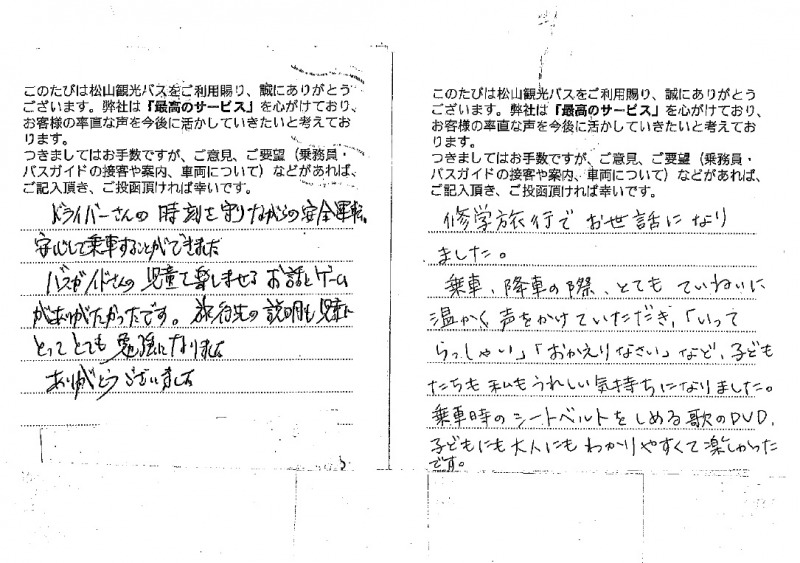 このたびは松山観光バスをご利用賜り、誠にありがとう
ございます。弊社は「最高のサービス」を心がけており、
お客様の率直な声を今後に活かしていきたいと考えてお
ります。
つきましてはお手数ですが、ご意見、ご要望（乗務員・
バスガイドの接客や案内、車両について）などがあれば、
ご記入頂き、ご投函頂ければ幸いです。
ドライバーさんの時刻を守りながらの安全運転、
安心して乗車することができました
バスガイドさんの児童を楽しませるお話とゲーム
がありがたかったです。旅行先の説明も児童に
とってとても勉強になりました
ありがとうございました
このたびは松山観光バスをご利用賜り、誠にありがとう
ございます。弊社は「最高のサービス」を心がけており、
お客様の率直な声を今後に活かしていきたいと考えてお
ります。
つきましてはお手数ですが、ご意見、ご要望（乗務員・
バスガイドの接客や案内、車両について）などがあれば、
ご記入頂き、ご投函頂ければ幸いです。
修学旅行でお世話になり
ました。
乗車、降車の際、とてもていねいに
温かく声をかけていただき、「いって
らっしゃい」「おかえりなさい」など、子ども
たちも私もうれしい気持ちになりました。
乗車時のシートベルトをしめる歌のDVD、
子どもにも大人にもわかりやすくて楽しかった
です。